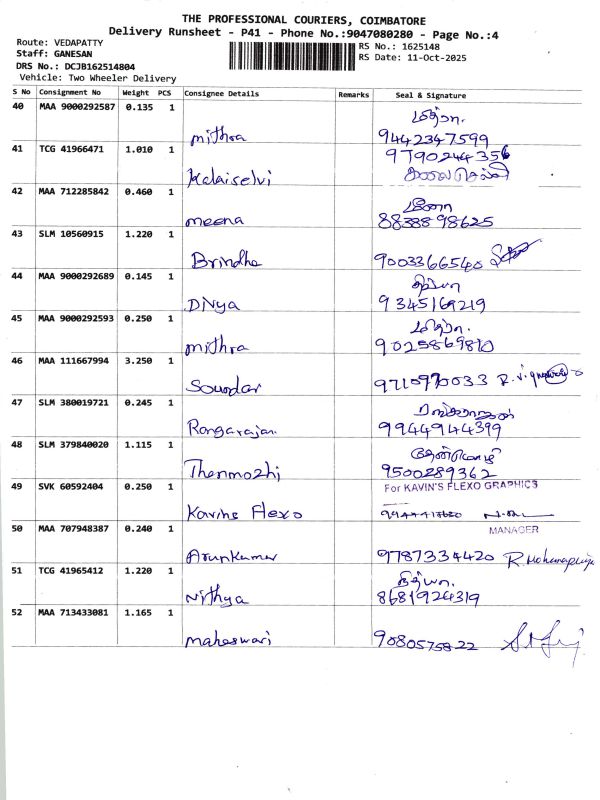 THE PROFESSIONAL COURIERS, COIMBATORE
Delivery Runsheet - P41 - Phone No.:9047080280 - Page No.:4
Route: VEDAPATTY
Staff: GANESAN
DRS No.: DCJB162514804
Vehicle: Two Wheeler Delivery
RS No.: 1625148
RS Date: 11-Oct-2025
S No Consignment No Weight PCS Consignee Details Remarks Seal & Signature
40 MAA 9000292587 0.135 1
மித்ரா.
mithra 9442347599
41 TCG 41966471 1.010 1 9790244356
Kalaiselvi கலைசெல்வி
42 MAA 712285842 0.460 1
மீனா
meena 8838898625
43 SLM 10560915 1.220 1
Brindha 9003366540
44 MAA 9000292689 0.145 1
திவ்யா
Divya 9345169219
45 MAA 9000292593 0.250 1
மித்ரா.
mithra 9025869810
46 MAA 111667994 3.250 1
Soundar 9710970033
47 SLM 380019721 0.245 1
ரங்கராஜன்
Rangarajan 9944944399
48 SLM 379840020 1.115 1
தேன்மொழி
Thenmozhi 9500289362
49 SVK 60592404 0.250 1 For KAVIN'S FLEXO GRAPHICS
Kavins Flexo
50 MAA 707948387 0.240 1 MANAGER
Arunkumar 9787334420
51 TCG 41965412 1.220 1
நித்யா.
Nithya 8681924319
52 MAA 713433081 1.165 1
maheswari 9080575822